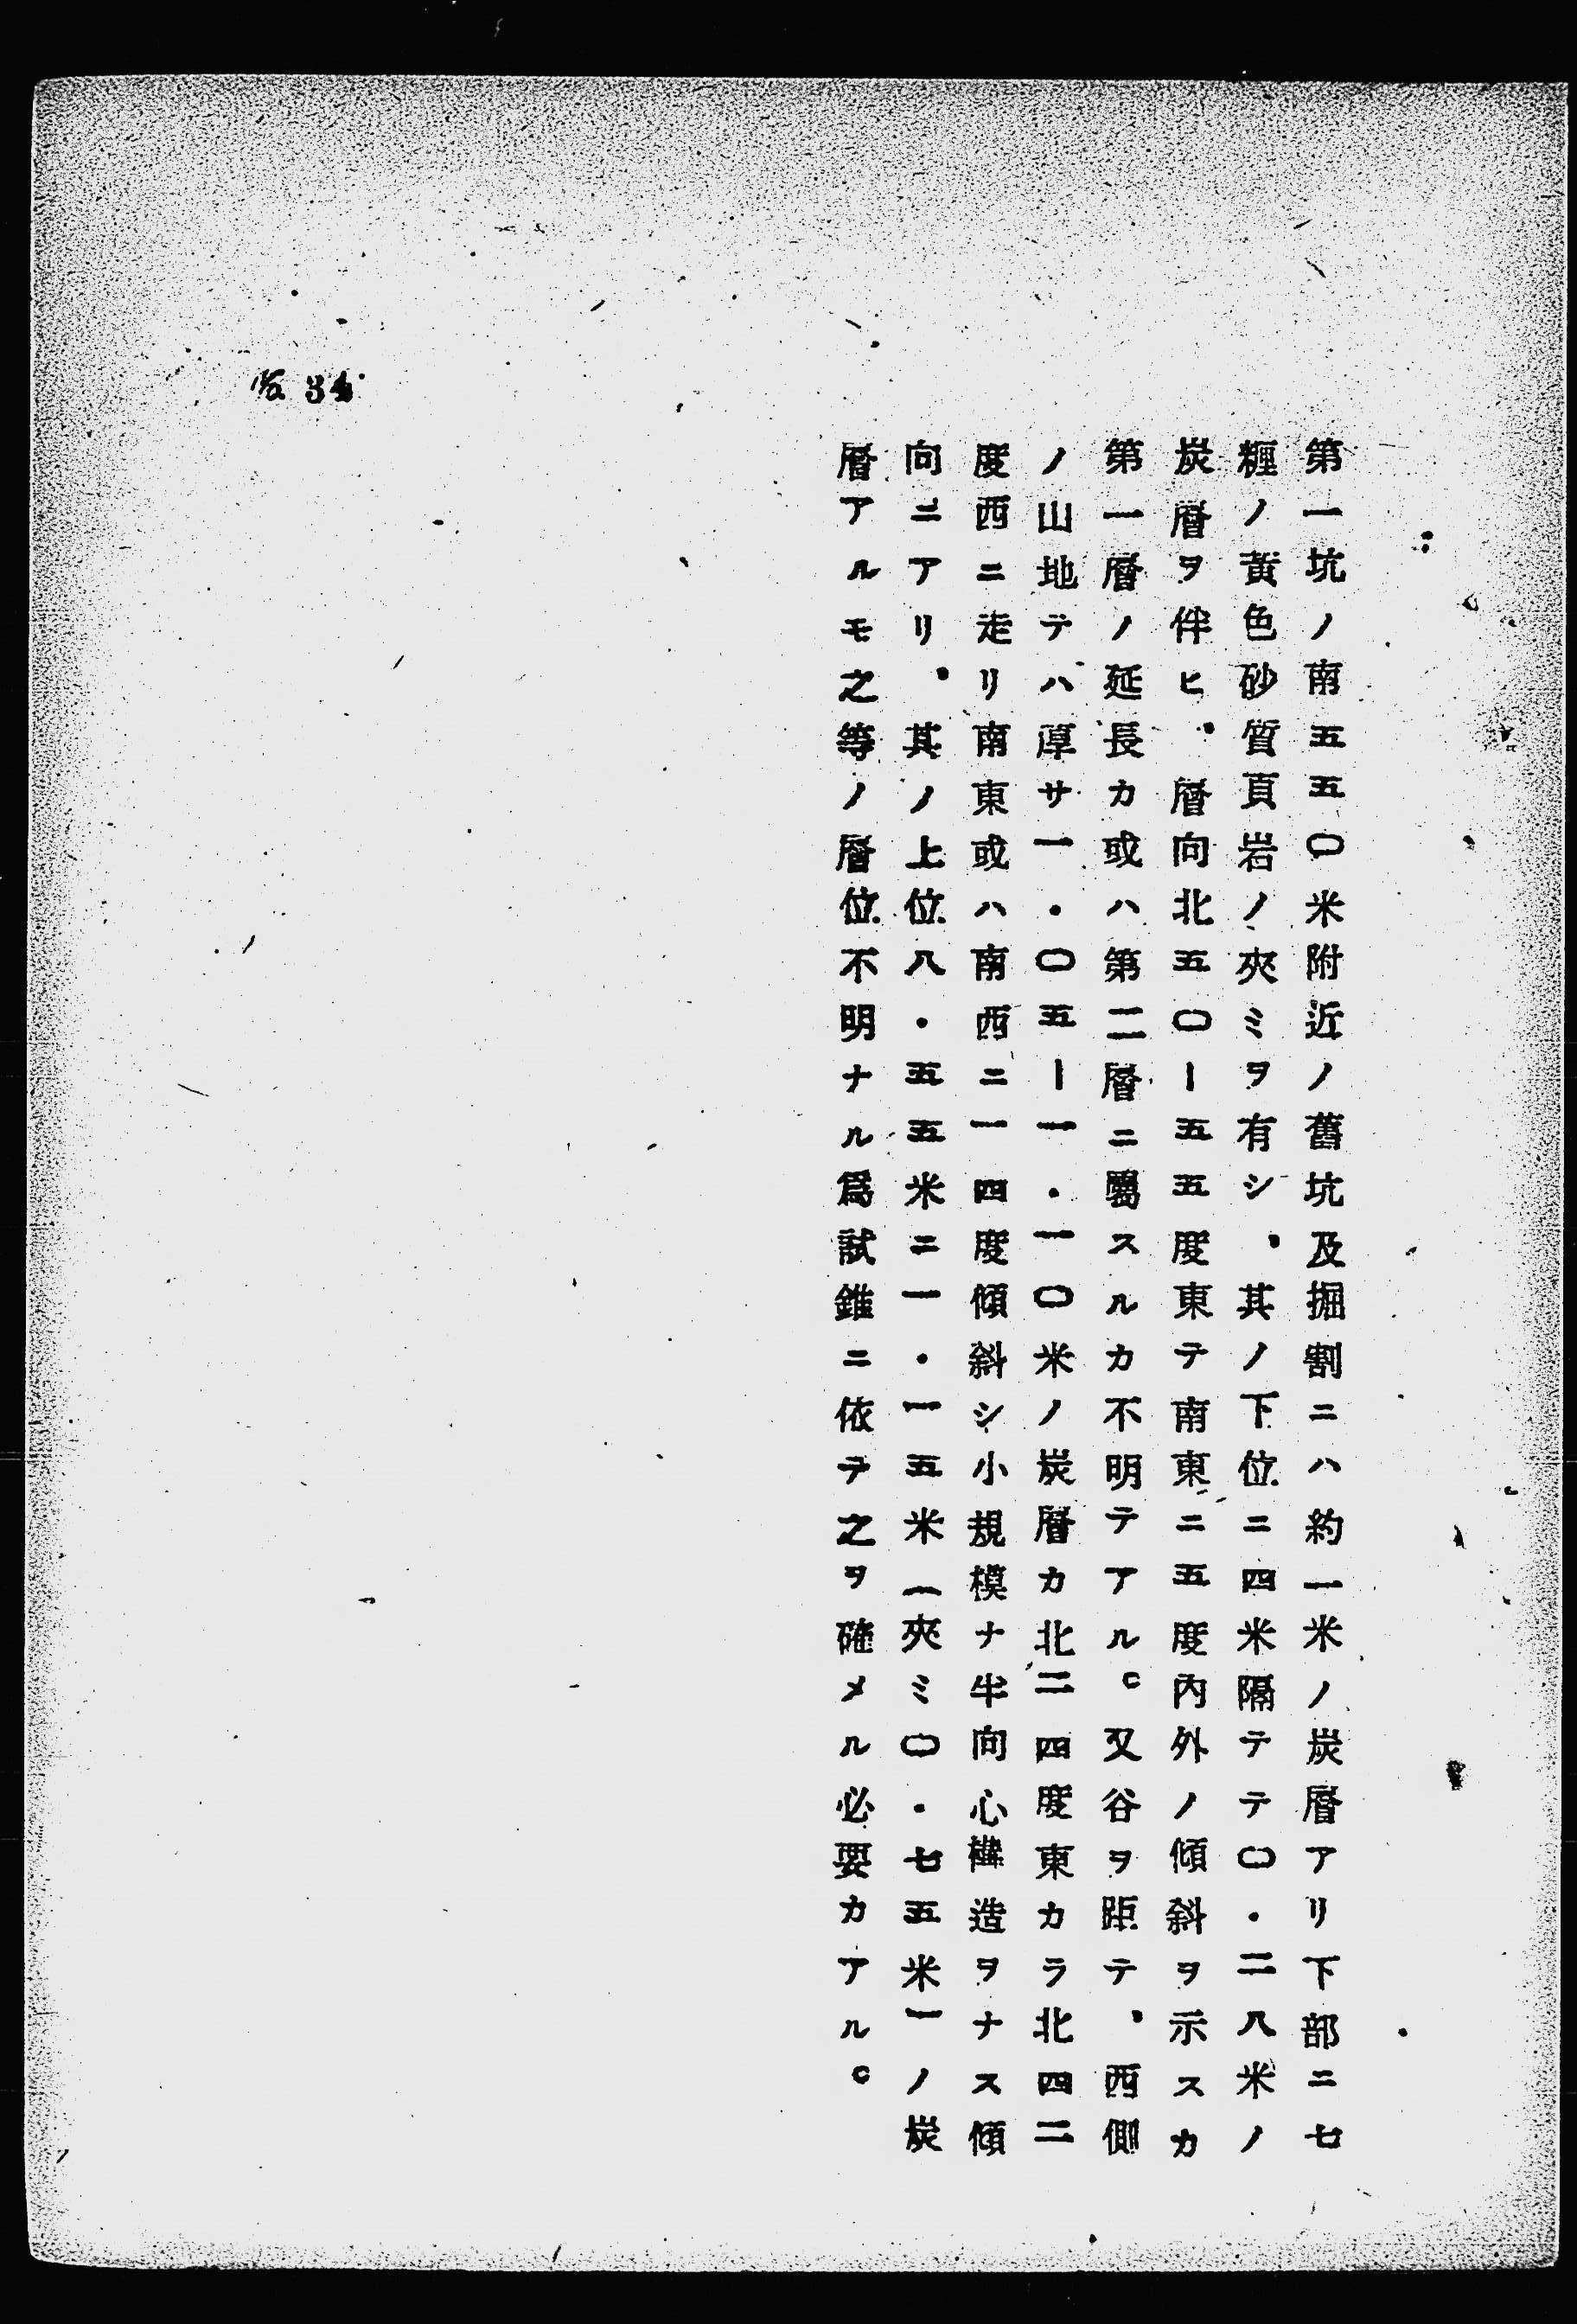 第一坑ノ南五五〇米附近ノ舊坑及掘割ニハ約一米ノ炭層アリ下部ニ七
糎ノ黃色砂質頁岩ノ夾ミヲ有シ、其ノ下位ニ四米隔テテ〇・二八米ノ
炭層ヲ伴ヒ、層向北五〇ー五五度東テ南東ニ五度內外ノ傾斜ヲ示スカ
第一層ノ延長カ或ハ第二層ニ屬スルカ不明テアル。又谷ヲ距テ、西側
ノ山地テハ厚サ一・〇五ー一・一〇米ノ炭層カ北二四度東カラ北四二
度西ニ走リ南東或ハ南西ニ一四度傾斜シ小規模ナ半向心構造ヲナス傾
向ニアリ、其ノ上位八・五五米ニ一・一五米(夾ミ〇・七五米)ノ炭
層アルモ之等ノ層位不明ナル爲試錐ニ依テ之ヲ確メル必要カアル。
34